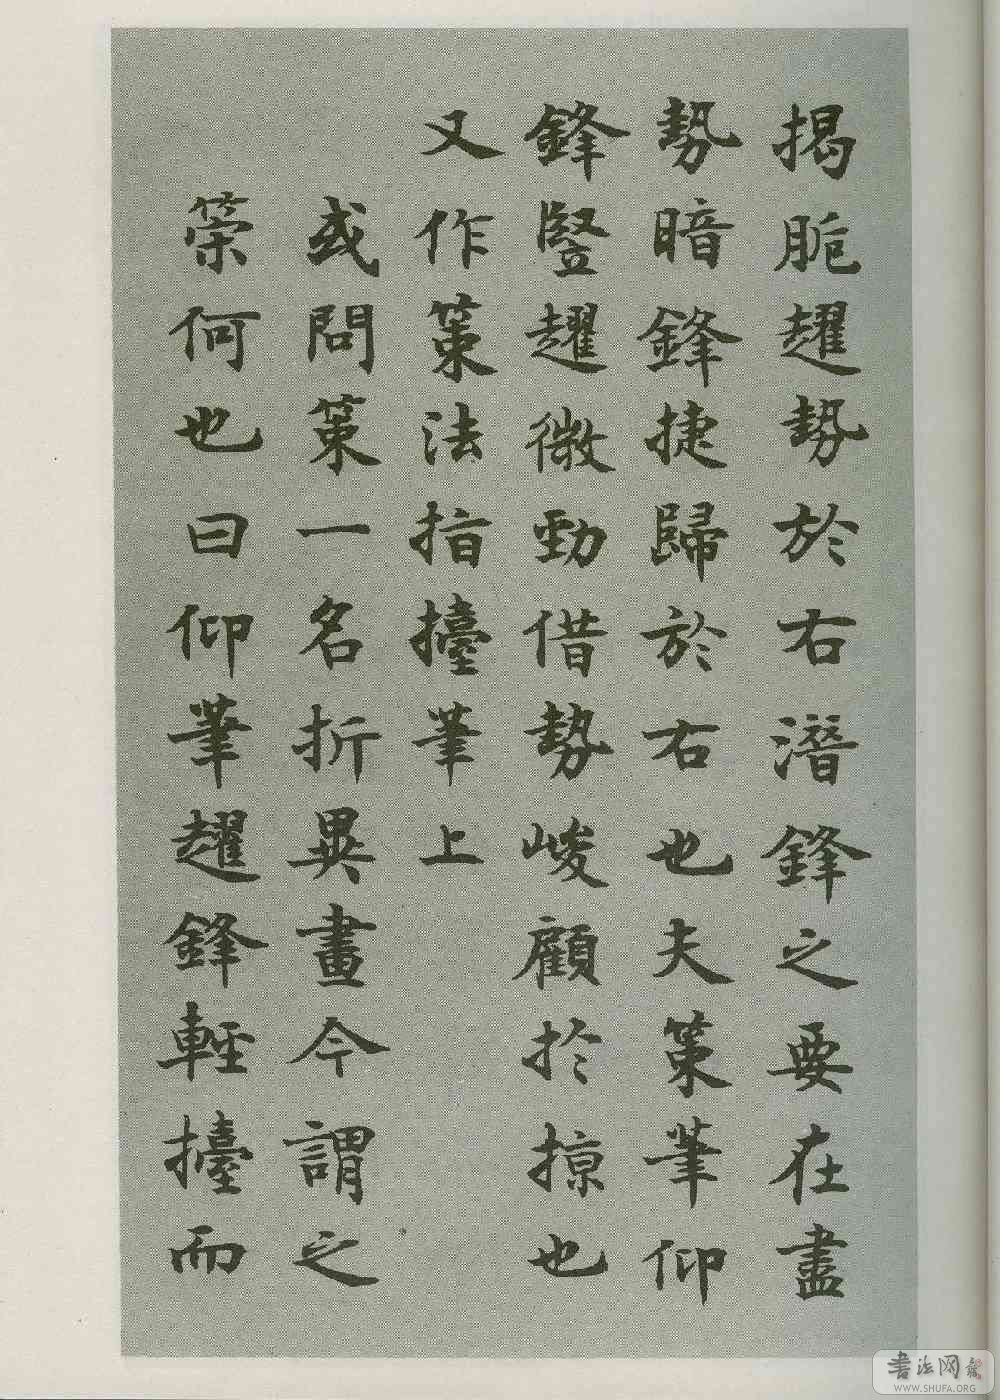 揭腕趯勢於右潛鋒之要在盡
勢暗鋒捷歸於右也夫策筆仰
鋒豎趯微勁借勢峻顧於掠也
又作策法指擡筆上
或問策一名折異畫今謂之
策何也曰仰筆趯鋒輕擡而
書法网
WWW.SHUFA.ORG